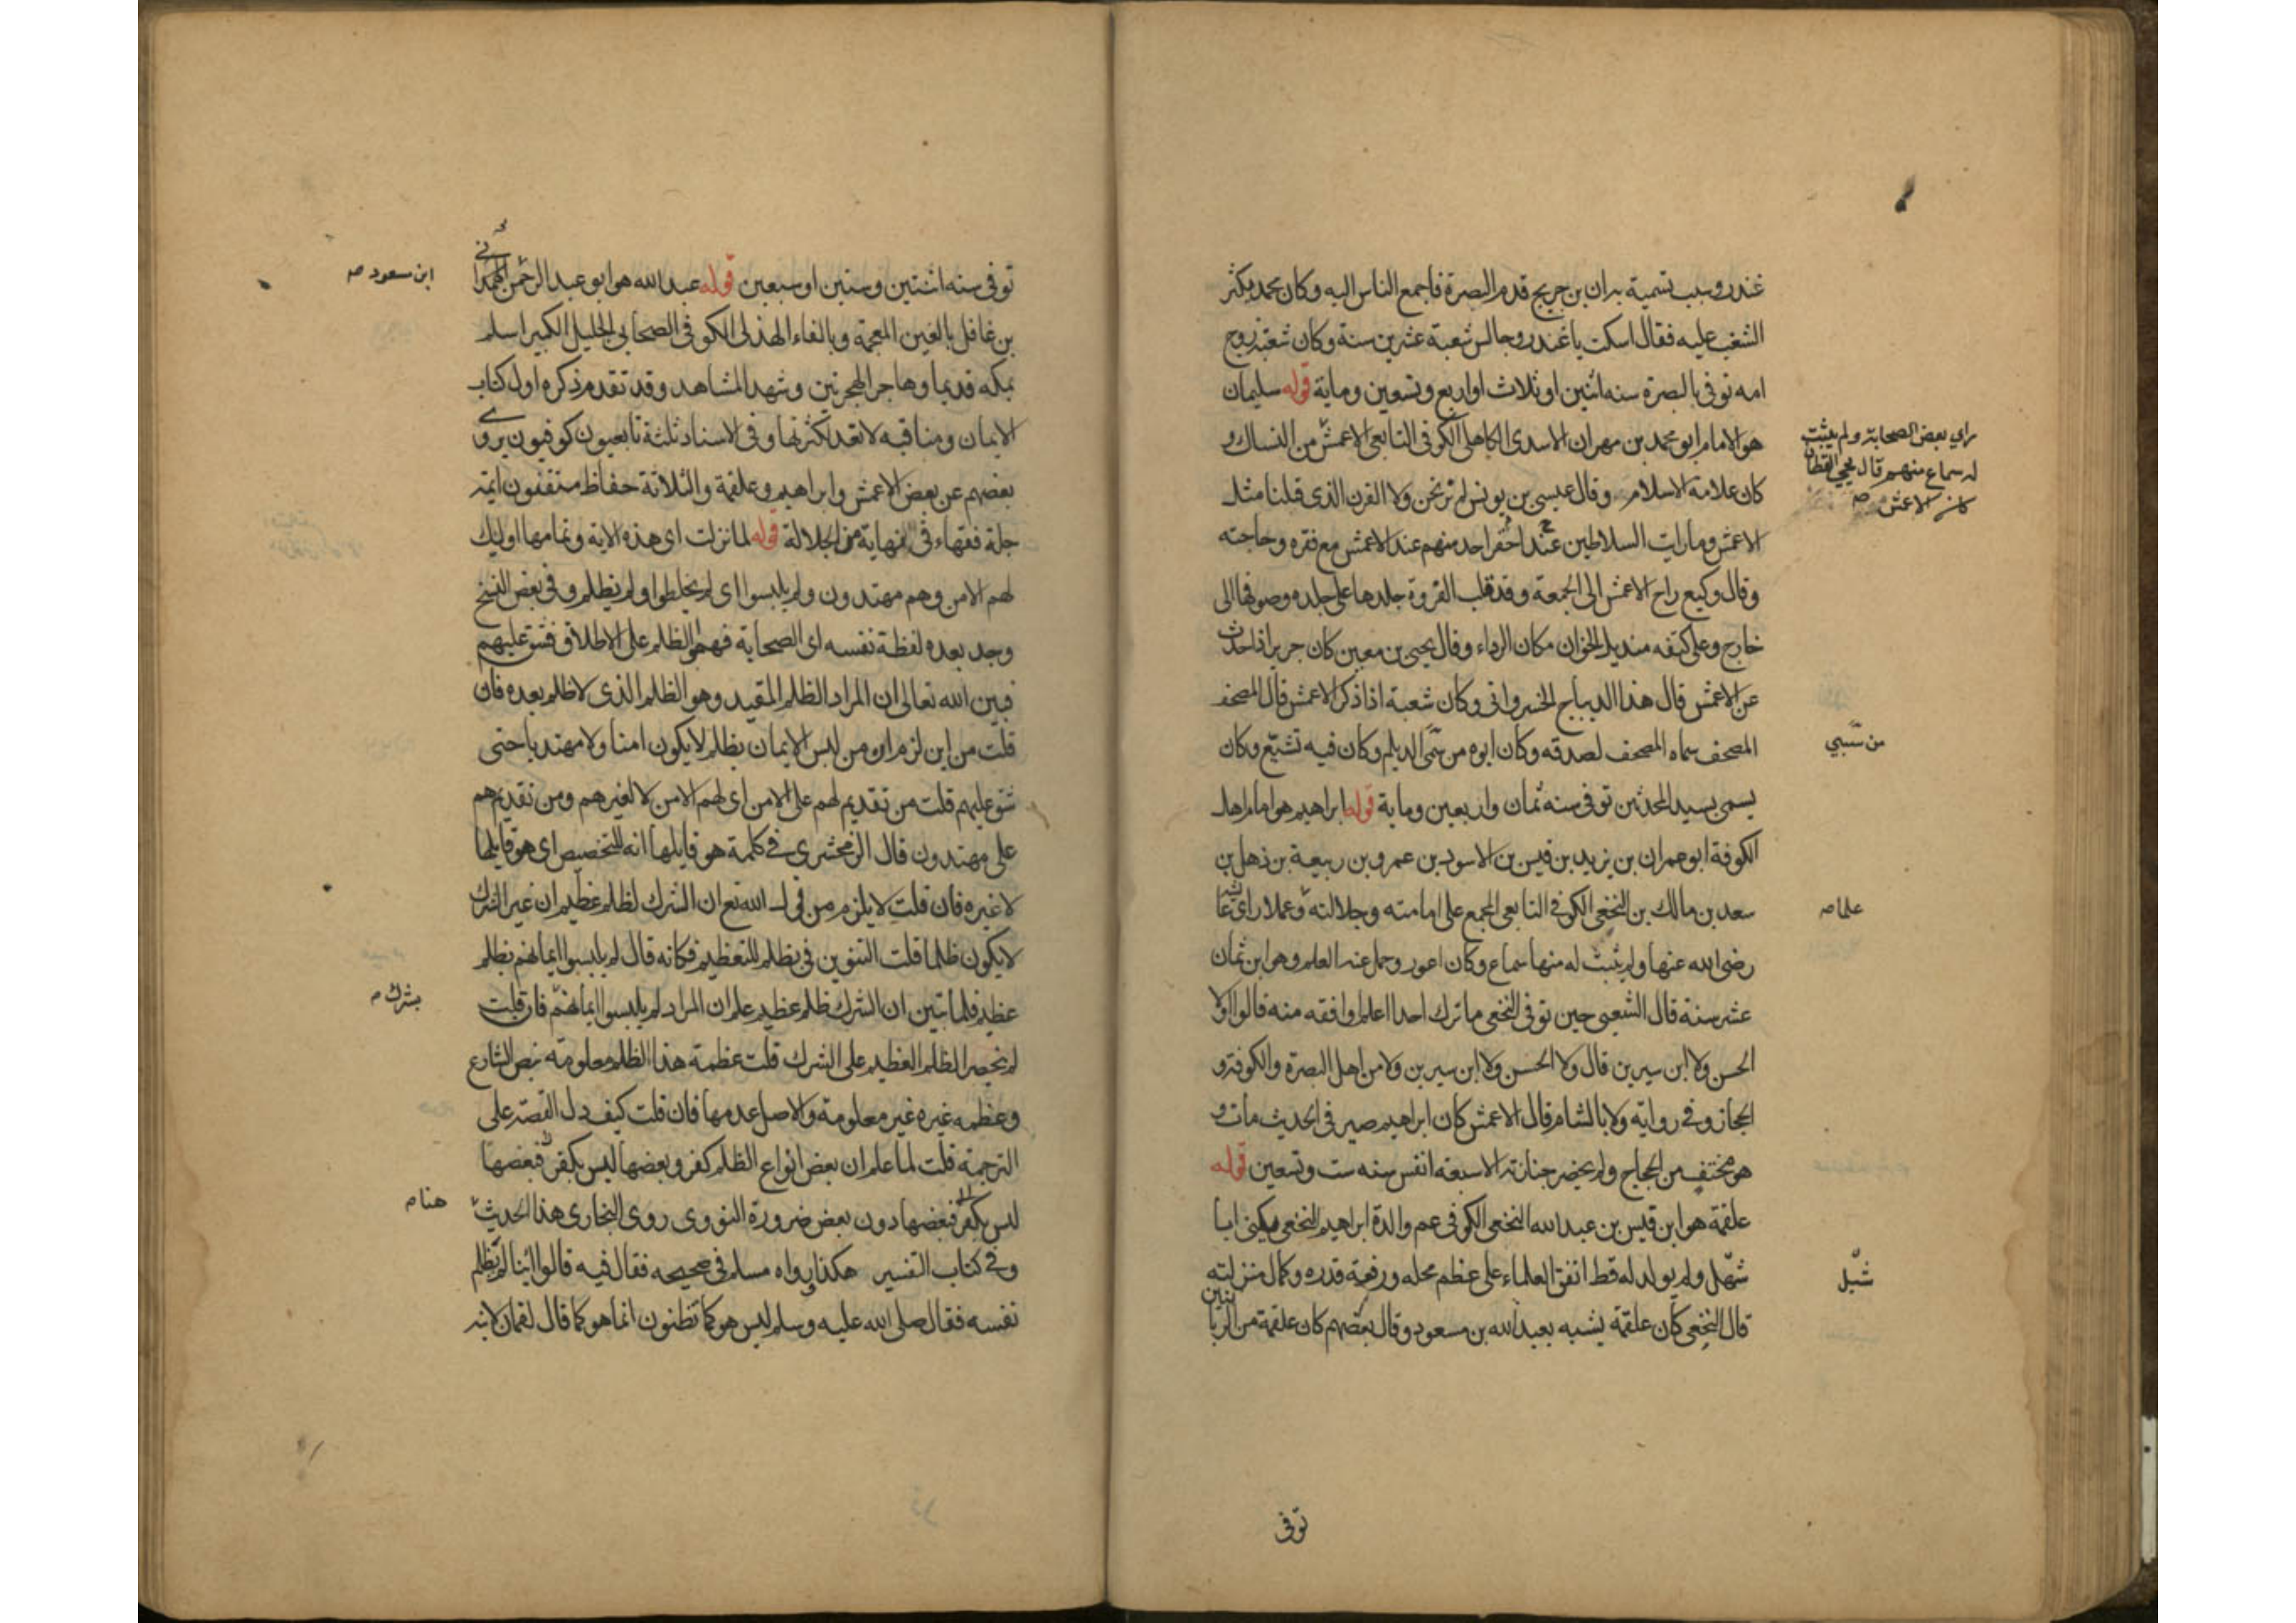 غندر وسبب تسمية به ان ابن جريج قدم البصرة فاجمع الناس اليه وكان محمد يكثر
الشغب عليه فقال اسكت يا غندر وجالس شعبة عشرين سنة وكان شعبة زوج
امه توفى بالبصرة سنه اثنين او ثلاث او اربع وتسعين وماية قوله سليمان
هو الامام ابو محمد بن مهران الاسدى الكاهلى الكوفى التابعى الاعمش من النساك و
راي بعض الصحابة ولم يثبت
له سماع منهم قال يحيى القطان
كان الاعمش صه
كان علامة الاسلام وقال عيسى بن يونس لم نر نحن ولا القرن الذى قبلنا مثل
الاعمش وما رايت السلاطين عند احد احقر منهم عند الاعمش مع فقره وحاجته
وقال وكيع راح الاعمش الى الجمعة وقد قلب الفروة جلدها على جلده وصوفها الى
خارج وعلى كتفه منديل الخوان مكان الرداء وقال يحيى بن معين كان جرير اذا حدث
عن الاعمش قال هذا الديباج الخسروانى وكان شعبة اذا ذكر الاعمش قال المصحف
المصحف سماه المصحف لصدقه وكان ابوه من سبى الديلم وكان فيه تشيع وكان
من سبي
يسمى بسيد المحدثين توفى سنه ثمان واربعين وماية قوله ابراهيم هو امام اهل
الكوفة ابو عمران بن يزيد بن قيس بن الاسود بن عمرو بن ربيعة بن ذهل بن
سعد بن مالك بن النخعى الكوفى التابعى المجمع على امامته وجلالته وعملا راى عايشه
علما صه
رضى الله عنها ولم يثبت له منها سماع وكان اعور وحمل عنه العلم وهو ابن ثمان
عشر سنة قال الشعبى حين توفى النخعى ما ترك احدا اعلم او افقه منه قالوا ولا
الحسن ولا ابن سيرين قال ولا الحسن ولا ابن سيرين ولا من اهل البصرة والكوفة و
الحجاز وفى رواية ولا بالشام قال الاعمش كان ابراهيم صير فى الحديث مات و
هو مختف من الحجاج ولم يحضر جنازته الا سبعة انفس سنه ست وتسعين قوله
علقمة هو ابن قيس بن عبد الله النخعى الكوفى عم والدة ابراهيم النخعى يكنى ابا
شهل ولم يولد له قط اتفق العلماء على عظم محله ورفعة قدره وكمال منزلته
شبل
قال النخعى كان علقمة يشبه بعبد الله بن مسعود وقال بعضهم كان علقمة من الربانيين
توفى
توفى سنه اثنتين وستين او سبعين قوله عبد الله هو ابو عبد الرحمن
ابن مسعود صه
بن غافل بالغين المعجمة وبالفاء الهذلى الكوفى الصحابى الجليل الكبير اسلم
بمكه قديما وهاجر الهجرتين وشهد المشاهد وقد تقدم ذكره اول كتاب
الايمان ومناقبه لا تعد لكثرتها وفى الاسناد ثلثة تابعيون كوفيون يروى
بعضهم عن بعض الاعمش وابراهيم وعلقمة والثلاثة حفاظ متقنون ايمة
جلة فقهاء فى نهاية من الجلالة قوله لما نزلت اى هذه الاية وتمامها اوليك
لهم الامن وهم مهتدون ولم يلبسوا اى لم يخلطوا ولم يظلم وفى بعض النسخ
وجد بعده لفظة نفسه اى الصحابة فهموا الظلم على الاطلاق فشق عليهم
فبين الله تعالى ان المراد الظلم المقيد وهو الظلم الذى لا ظلم بعده فان
قلت من اين لزم ان من لبس الايمان بظلم لا يكون امنا ولا مهتديا حتى
شق عليهم قلت من تقديم لهم على الامن اى لهم الامن لا لغيرهم ومن تقديم هم
على مهتدون قال الزمخشرى فى كلمة هو قايلها انه للتخصيص اى هو قايلها
لا غيره فان قلت لا يلزم من قول الله تع ان الشرك لظلم عظيم ان غير الشرك
لا يكون ظلما قلت التنوين فى بظلم للتعظيم فكانه قال لم يلبسوا ايمانهم بظلم
عظيم فلما تبين ان الشرك ظلم عظيم علم ان المراد لم يلبسوا ايمانهم فان قلت
بشرك صه
لم ينحصر الظلم العظيم على الشرك قلت عظمة هذا الظلم معلومة بنص الشارع
وعظمه غيره غير معلومة والاصل عدمها فان قلت كيف دل القصة على
الترجمة قلت لما علم ان بعض انواع الظلم كفر وبعضها ليس بكفر فبعضها
ليس بكفر فبعضها دون بعض ضرورة النووى روى البخارى هذا الحديث
هنا صه
وفى كتاب التفسير هكذا رواه مسلم فى صحيحه فقال فيه قالوا اينا لم يظلم
نفسه فقال صلى الله عليه وسلم ليس هو كما تظنون انما هو كما قال لقمان لابنه